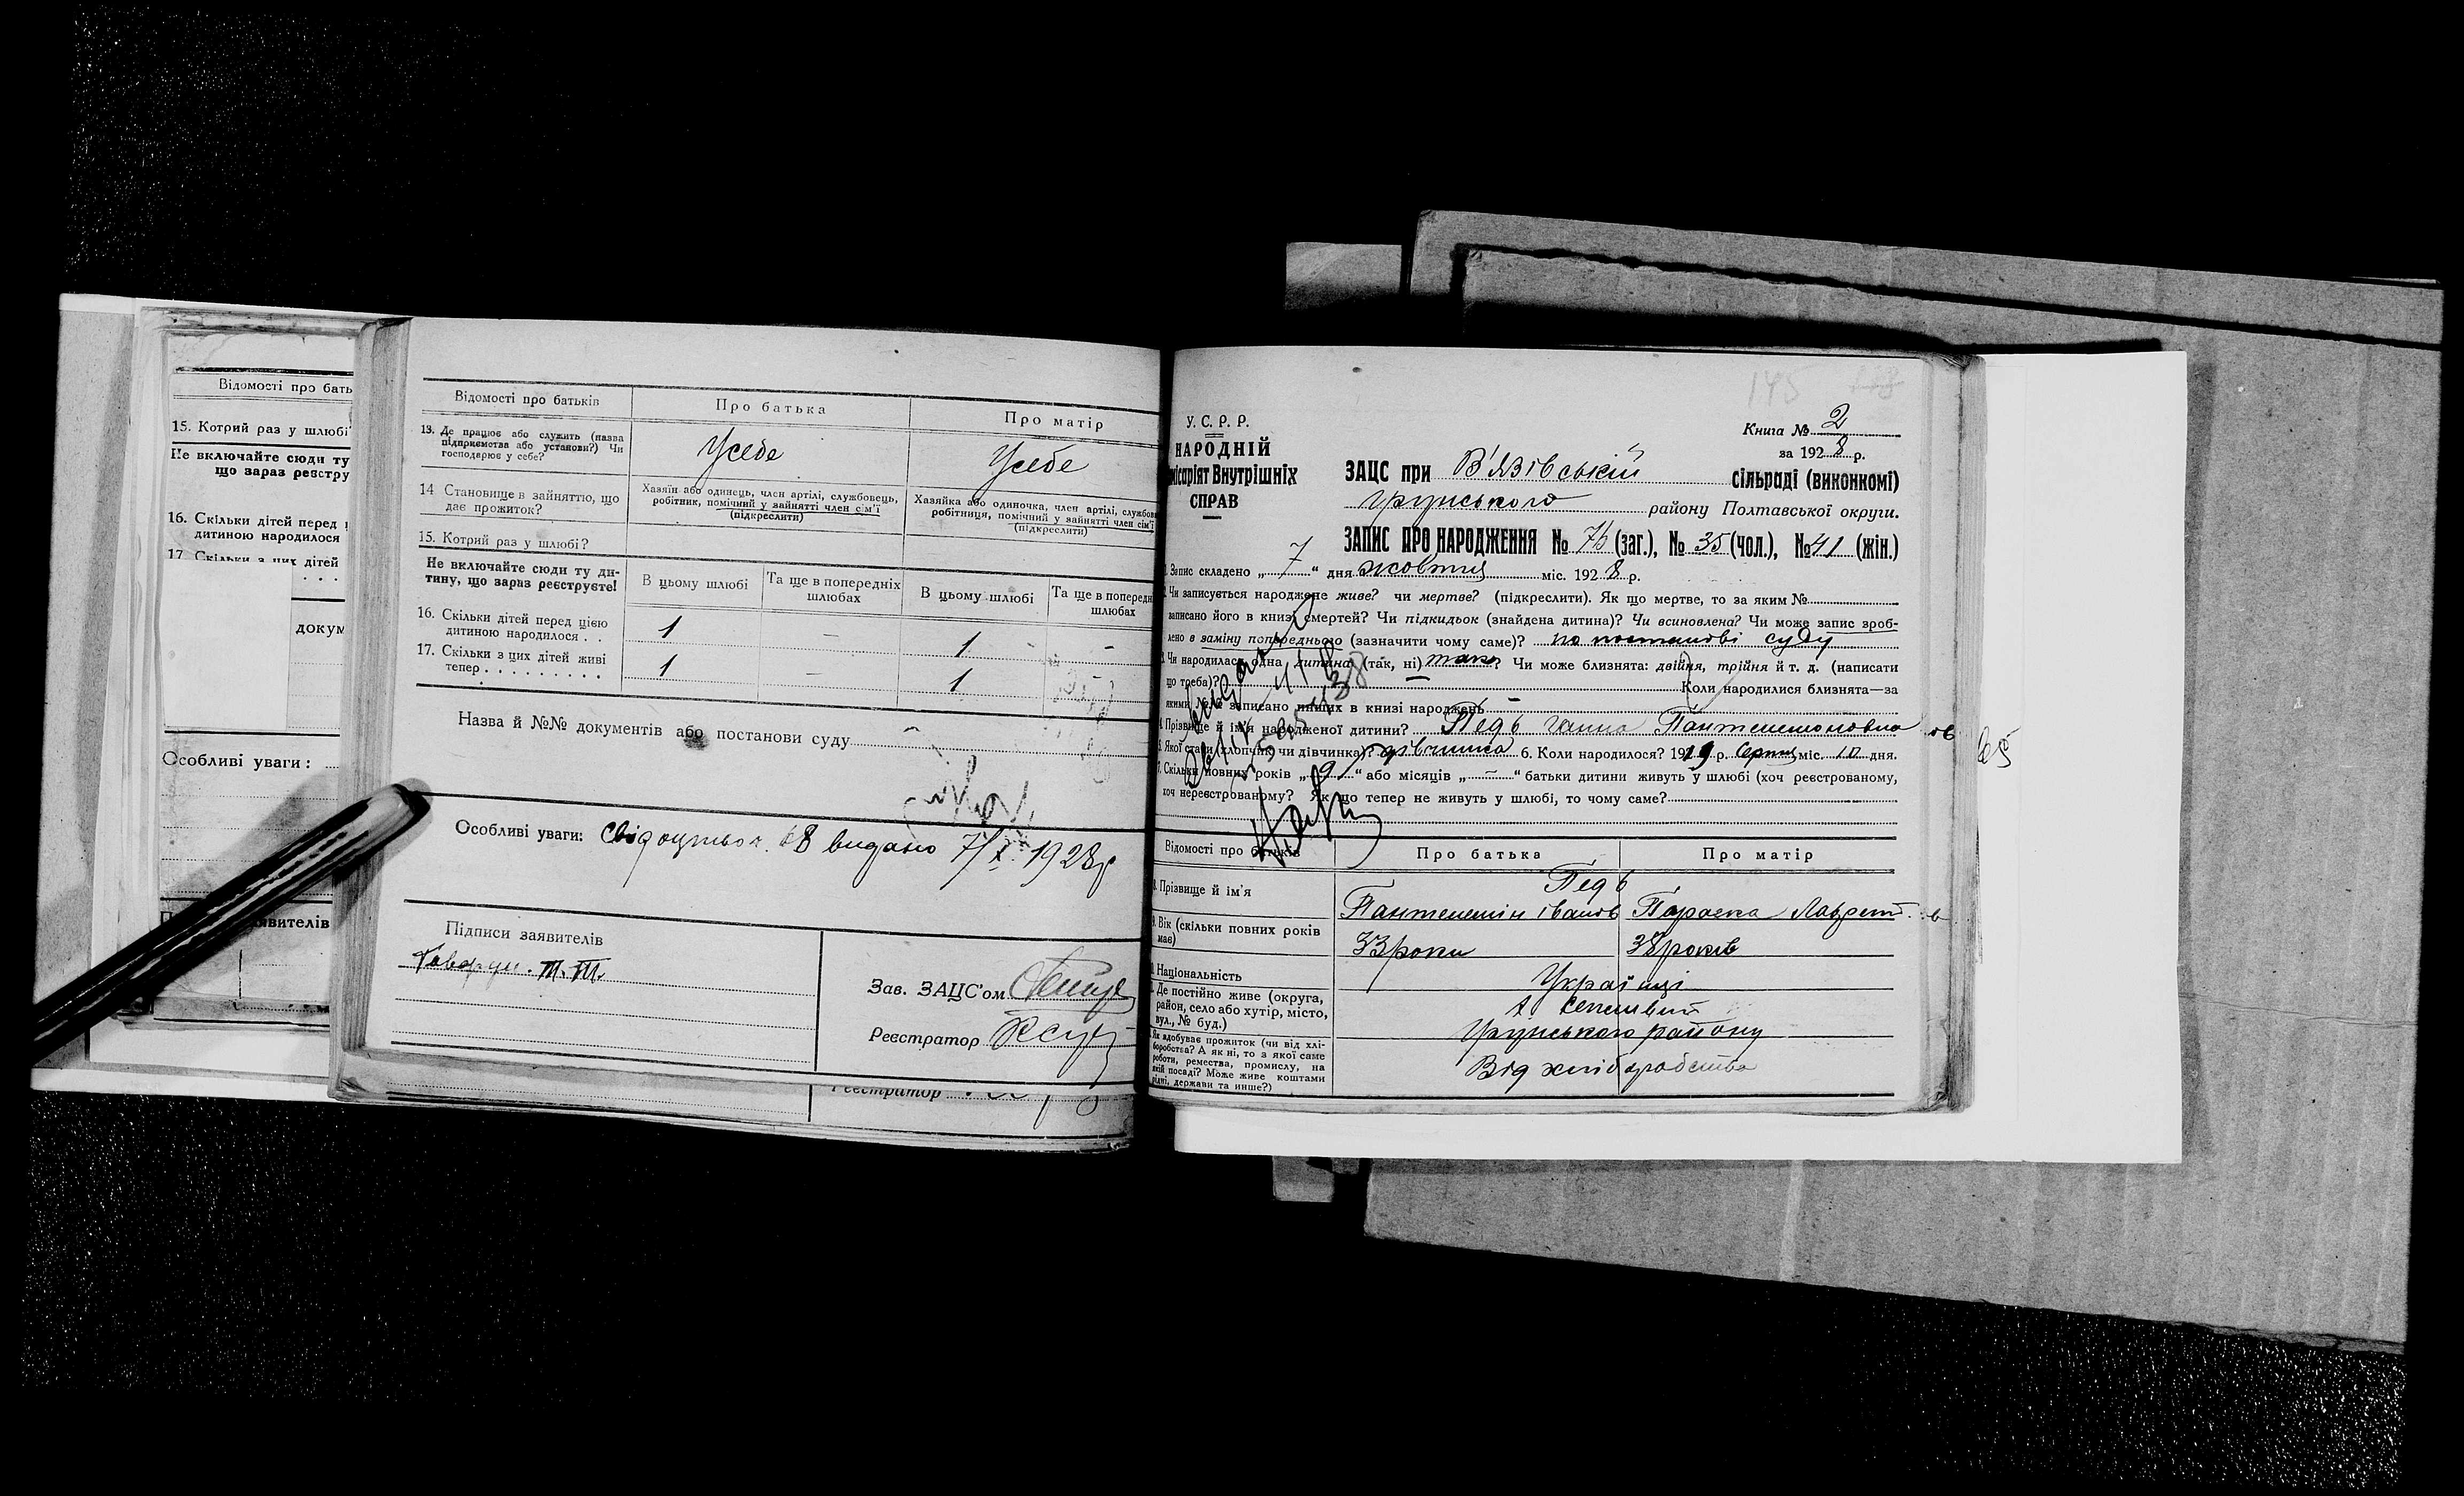 Відомості про бать
15. Котрий раз у шлюбі
Не включайте сюди ту
що зараз реєстру
16. Скільки дітей перед
дитиною народилося
17. Скільки з цих дітей
докум
Особливі уваги:
явителів
Відомості про батьків
Про батька
Про матір
13. Де працює або служить (назва
підприємства або установи?) Чи
господарює у себе?
Усебе
Усебе
14 Становище в зайняттю, що
дає прожиток?
Хазяїн або одинець, член артілі, службовець,
робітник, помічний у зайнятті член сім'ї
(підкреслити)
Хазяйка або одиночка, член артілі, службов
робітниця, помічний у зайнятті член сім'ї
(підкреслити)
15. Котрий раз у шлюбі?
Не включайте сюди ту ди-
тину, що зараз реєструєте!
В цьому шлюбі
Та ще в попередніх
шлюбах
В цьому шлюбі
Та ще в попередн
шлюбах
16. Скільки дітей перед цією
дитиною народилося . .
1 – 1 –
17. Скільки з цих дітей живі
тепер . . . . . . . . .
1 – 1
Назва й №№ документів або постанови суду
Особливі уваги: видано 7/X 1928р
Підписи заявителів
Зав. ЗАЦС'ом
Реєстратор
Реєстратор
145
У. С. Р. Р.
НАРОДНІЙ
місаріят Внутрішніх
СПРАВ
Книга № 2
за 1928 р.
ЗАЦС при В'язівській сільраді (виконкомі)
Грунського району Полтавської округи.
ЗАПИС ПРО НАРОДЖЕННЯ № (заг.), № 35 (чол.), № 41 (жін.)
Запис складено „ 7 “ дня жовтня міс. 1928 р.
Чи записується народжене живе? чи мертве? (підкреслити). Як що мертве, то за яким №
записано його в книзі смертей? Чи підкидьок (знайдена дитина)? Чи всиновлена? Чи може запис зроб-
лено в заміну попереднього (зазначити чому саме)? по постанові суду
Чи народилася одна дитина (так, ні) так? Чи може близнята: двійня, трійня й т. д. (написати
що треба)? Коли народилися близнята—за
якими №№ записано инших в книзі народжень –
Прізвище й ім'я народженої дитини? Педь Ганна Пантелемоновна
Якої стати (хлопчик чи дівчинка)? дівчинка 6. Коли народилося? 1919 р. Серпня міс. 10 дня.
Скільки повних років „ 9 “ або місяців „ – “ батьки дитини живуть у шлюбі (хоч реєстрованому,
хоч нереєстрованому? Як що тепер не живуть у шлюбі, то чому саме?
Відомості про батьків
Про батька
Про матір
Прізвище й ім'я
Педь
Пантелемін іванов
Параска Лаврент.
9. Вік (скільки повних років
має)
33 роки
38 років
Національність
Українці
Де постійно живе (округа,
район, село або хутір, місто,
вул., № буд.)
Грунського району
Як здобуває прожиток (чи від хлі-
боробства? А як ні, то з якої саме
роботи, ремества, промислу, на
якій посаді? Може живе коштами
рідні, держави та инше?)
Від хліборобства